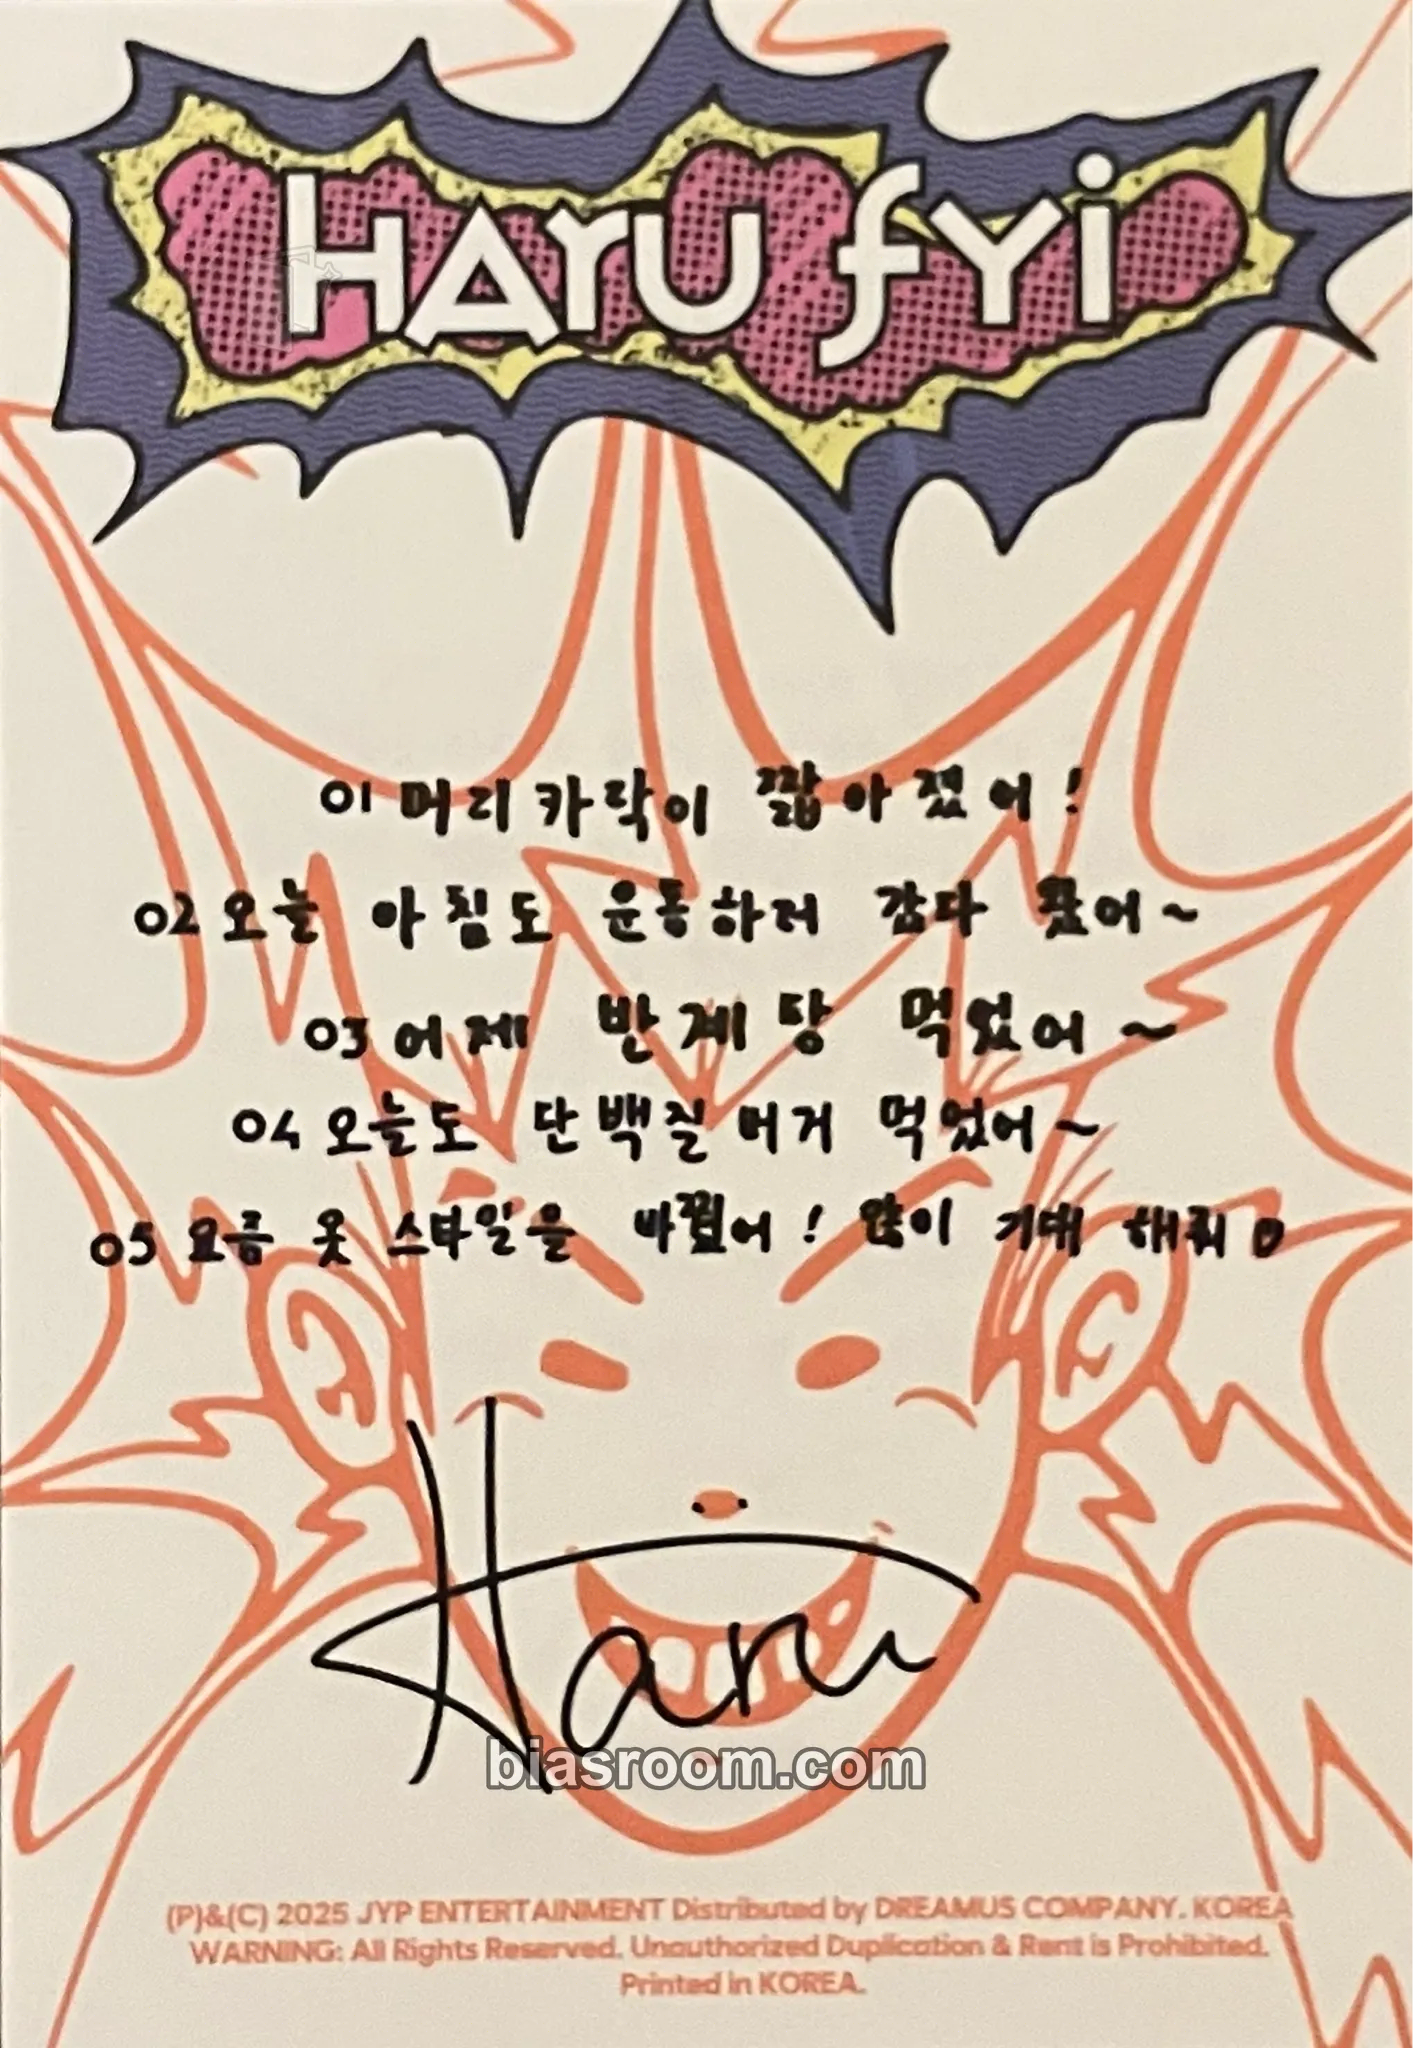 HARU FYI
01 머리카락이 짧아졌어!
02 오늘 아침도 운동하러 갔다 왔어~
03 어제 반계탕 먹었어~
04 오늘도 단백질버거 먹었어~
05 요즘 옷 스타일을 바꿨어! 많이 기대해줘♡
Haru
biasroom.com
(P)&(C) 2025 JYP ENTERTAINMENT Distributed by DREAMUS COMPANY. KOREA
WARNING: All Rights Reserved. Unauthorized Duplication & Rent is Prohibited.
Printed in KOREA.